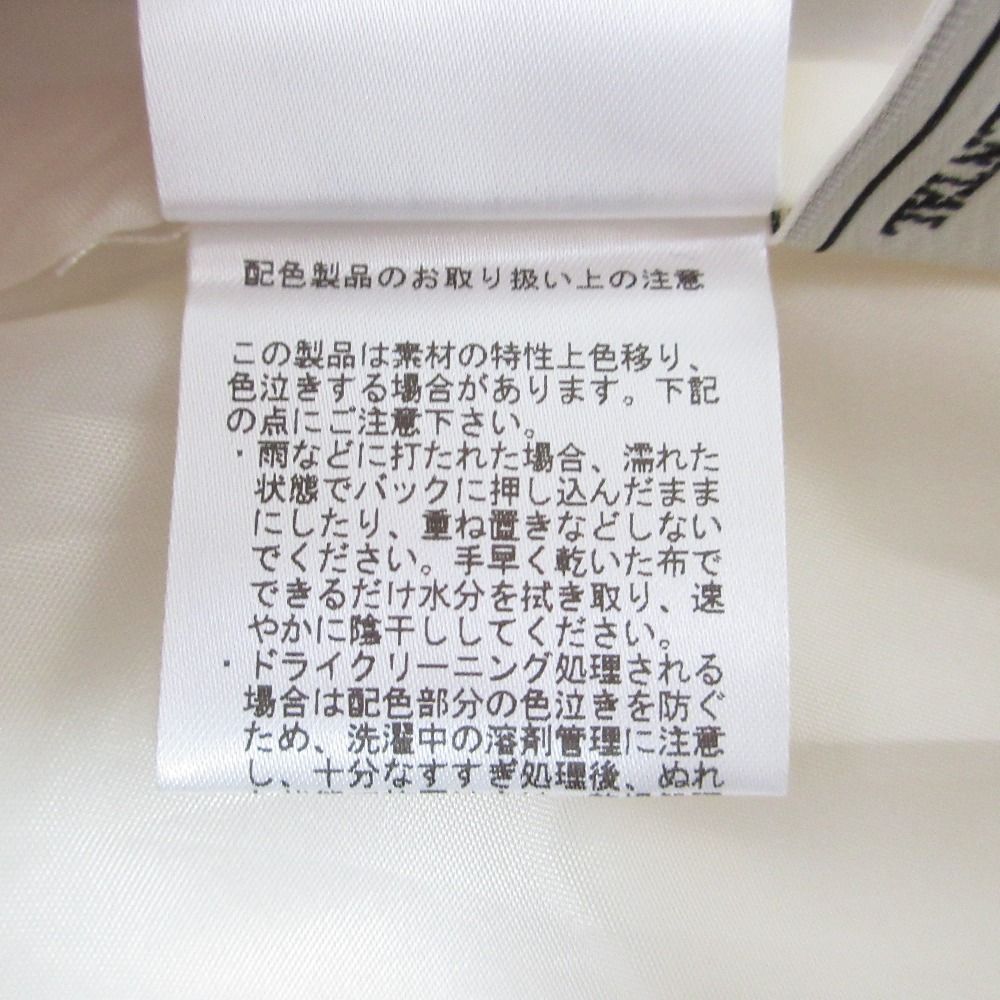 配色製品のお取り扱い上の注意
この製品は素材の特性上色移り、
色泣きする場合があります。下記
の点にご注意下さい。
・雨などに打たれた場合、濡れた
状態でバックに押し込んだまま
にしたり、重ね置きなどしない
でください。手早く乾いた布で
できるだけ水分を拭き取り、速
やかに陰干ししてください。
・ドライクリーニング処理される
場合は配色部分の色泣きを防ぐ
ため、洗濯中の溶剤管理に注意
し、十分なすすぎ処理後、ぬれ
ENTAL